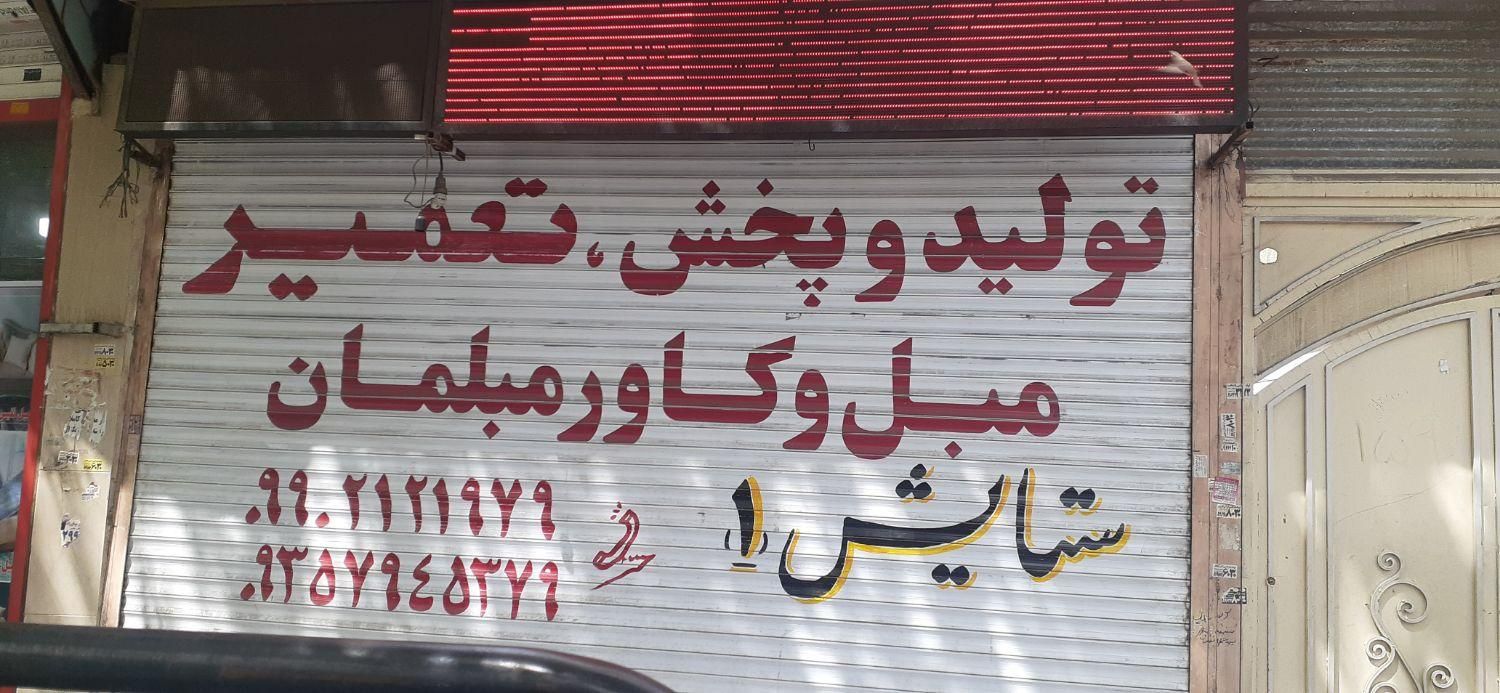 تولید و پخش، تعمیر
مبل و کاور مبلمان
ستایش ۱
۰۹۹۰۲۱۲۱۹۷۹
۰۹۳۵۷۹۴۵۳۷۹